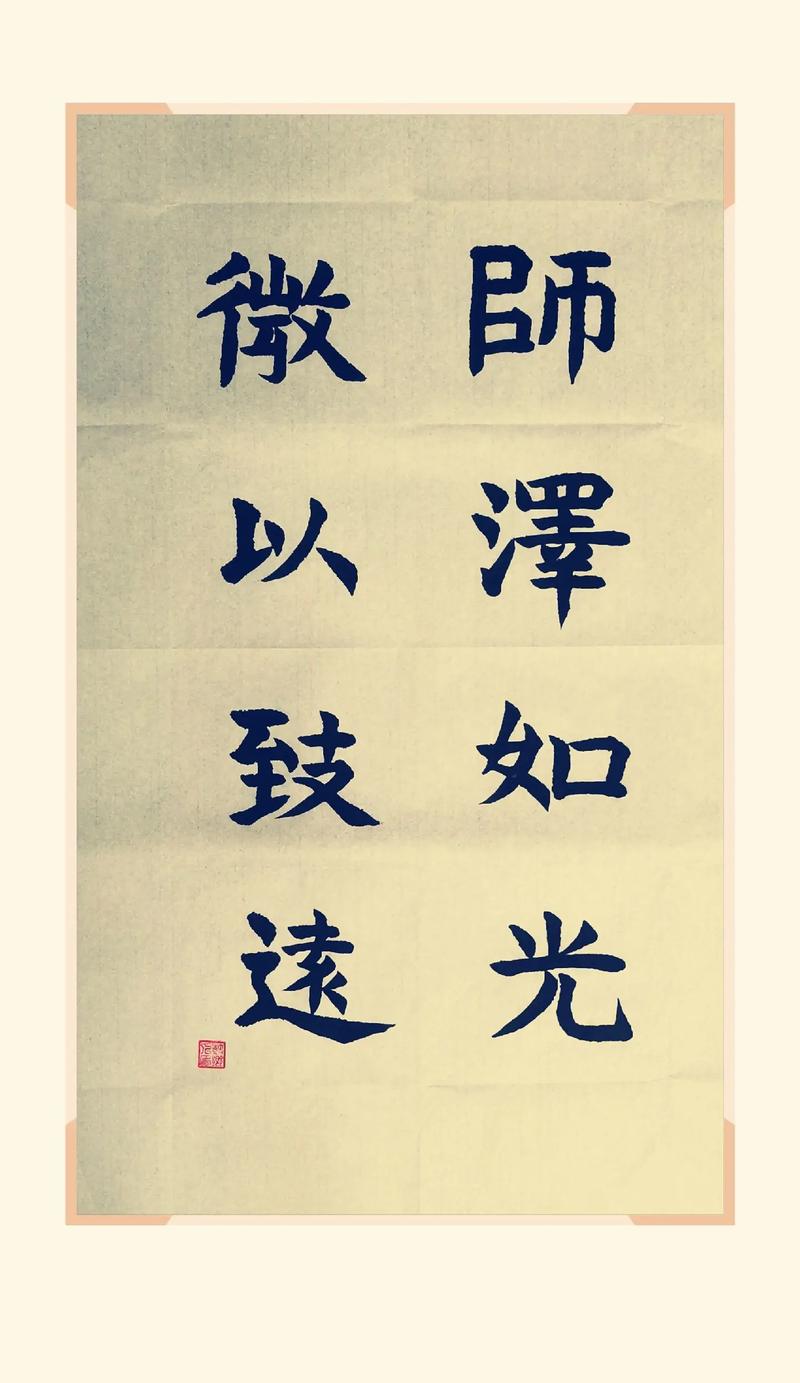 師澤如光
微以致遠